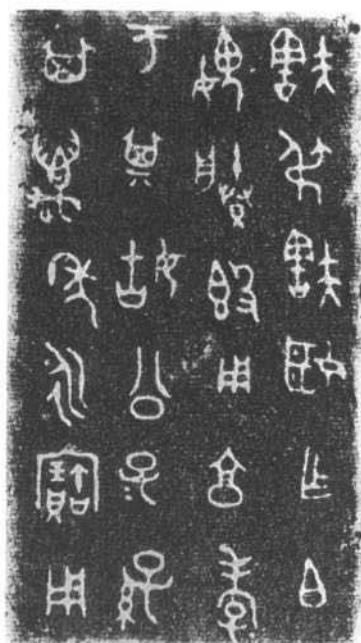 㝬叔㝬姬乍白
媿媵𣪘用享孝
于其姑公子孫
其萬年永寶用